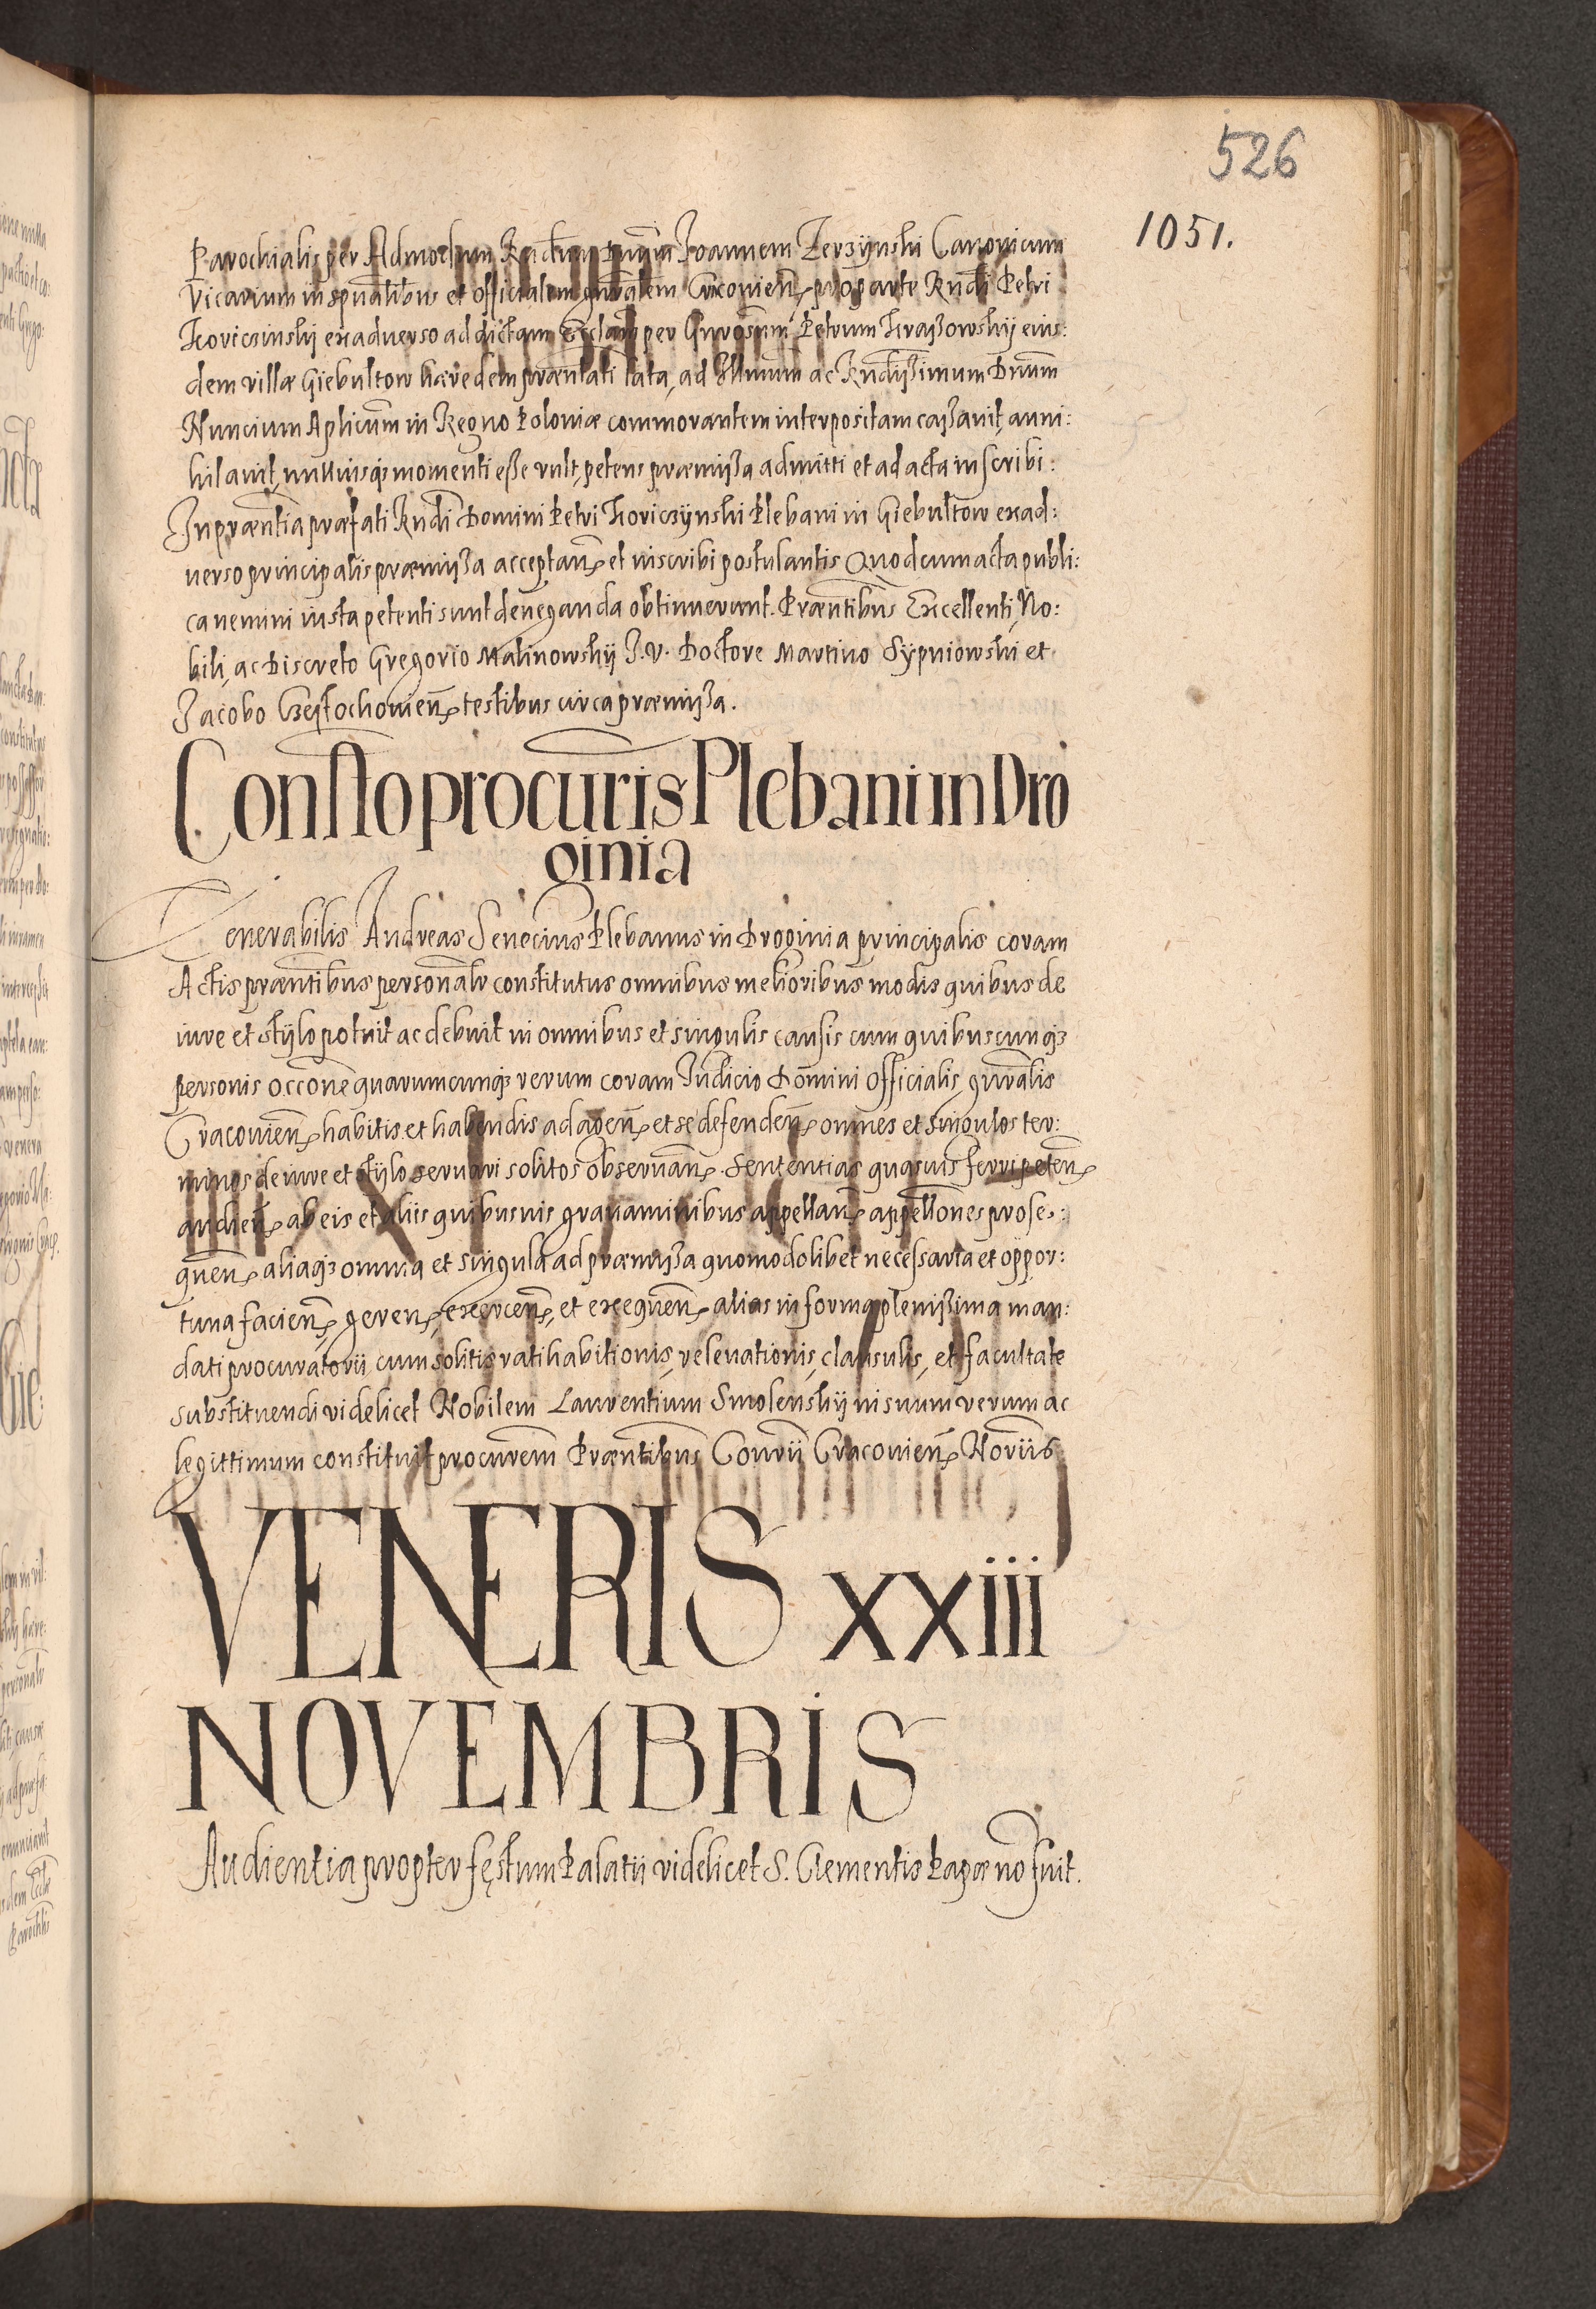 526
1051.
Parochialis per Admodum Rndum Dnum Joannem Zerzynski Canonicum
Vicarium in spualibus et officialem gnralem Cracovien, pro parte Rndi Petri
Koviczinskij ex adverso ad dictam Ecclam per Gnrosum Petrum Kraszowskij eius:
dem villæ Giebultow hæredem præntati lata, ad Illmum ac Rndissimum Dnum
Nuncium Aplicum in Regno Poloniæ commorantem interpositam cassavit, anni:
hilavit, nulliusq3 momenti esse vult, petens præmissa admitti et ad acta inscribi:
In præntia præfati Rndi Domini Petri Koviczynski Plebani in Giebultow ex ad:
verso principalis præmissa acceptan, et inscribi postulantis Quod cum acta publi:
ca nemini iusta petenti sunt deneganda obtinuerunt. Præntibus Excellenti, No:
bili, ac Discreto Gregorio Malinowskij J.V. Doctore Martino Sypniowski et
Jacobo Czestochovien, testibus circa præmissa.
Constto procuris Plebani in Dro
ginia
Venerabilis Andreas Senecius Plebanus in Droginia principalis coram
Actis præntibus personalr constitutus omnibus melioribus modis quibus de
iure et stylo potuit ac debuit in omnibus et singulis causis cum quibuscunq3
personis occone quarumcunq3 rerum coram Judicio Domini Officialis gnralis
Cracovien, habitis et habendis ad agen, et se defenden, omnes et singulos ter:
minos de iure et stylo servari solitos observan, sententias quasvis ferri peten,
audien, ab eis et aliis quibusvis gravaminibus appellan, appellones prose:
quen, aliaq3 omnia et singula ad præmissa quomodolibet necessaria et oppor:
tuna facien, geren, exercen, et exequen, alias in forma plenissima man:
dati procuratorii cum solitis ratihabitionis, relevationis, clausulis, et facultate
substituendi videlicet Nobilem Laurentium Smolenskij in suum verum ac
legittimum constituit procurem Præntibus Conrii Cracovien, Noriis
VENERIS xxiii
NOVEMBRIS
Audientia propter festum Palatii videlicet S. Clementis Papæ no fuit.